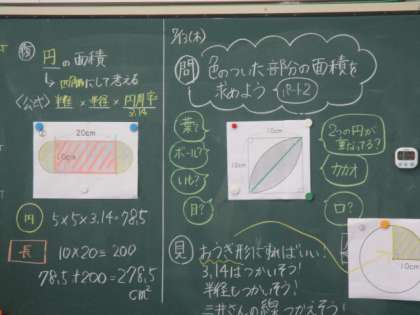 円の面積
にして考える
〈公式〉 半径×半径×円周率
3.14
20cm
10cm
円 5×5×3.14=78.5
長 10×20=200
78.5+200=278.5
cm²
7/13(木)
問 色のついた部分の面積を
求めよう P.12
葉?
ボール?
いも?
目?
10cm
10cm
2つの円が
重なってる?
カカオ
口?
見 おうぎ形にすればいい!
3.14はつかいそう!
半径もつかいそう!
三井さんの線つかえそう!
10cm